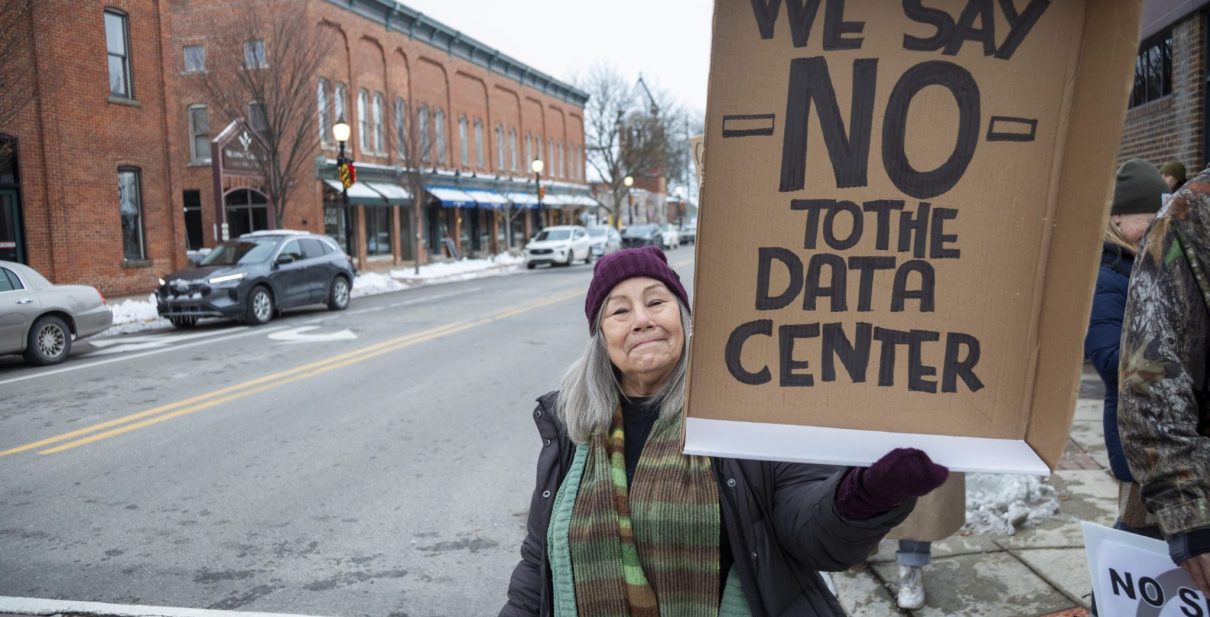 WE SAY
-NO-
TO THE
DATA
CENTER
NO S